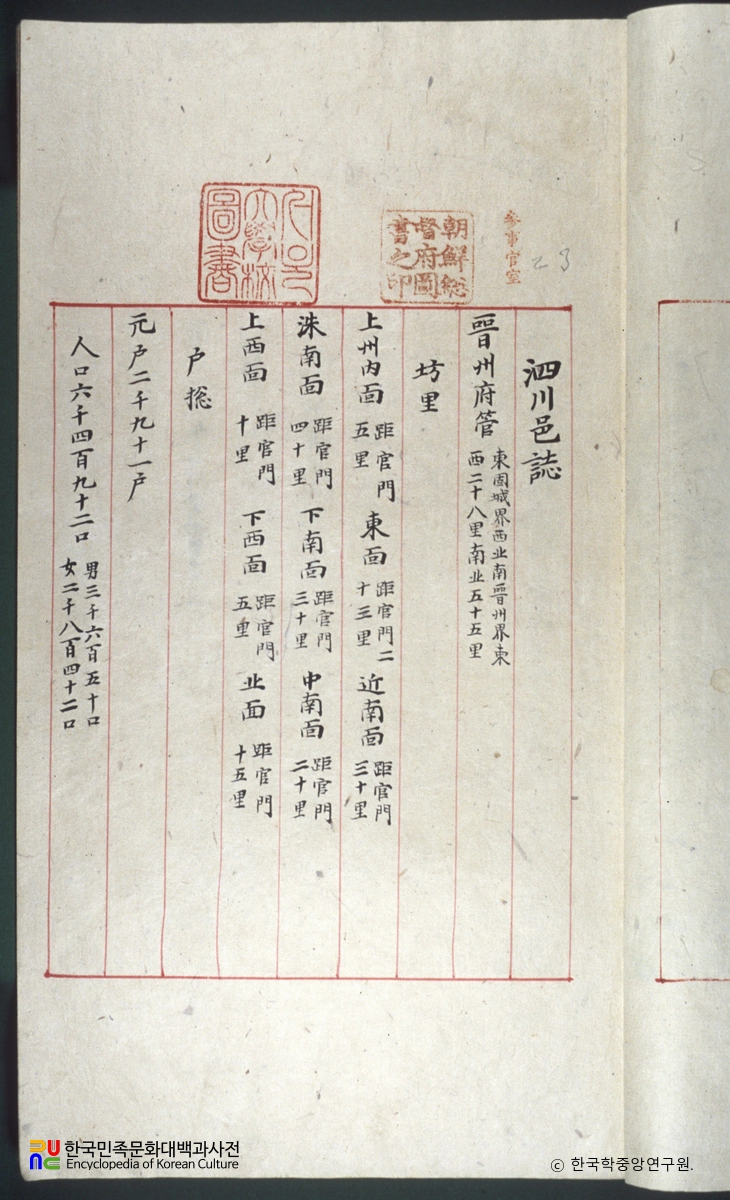 泗川邑誌
晋州府管 東固城界西北南晋州界東西二十八里南北五十五里
坊里
上州內面 距官門五里 東面 距官門二十三里 近南面 距官門三十里
洙南面 距官門四十里 下南面 距官門三十里 中南面 距官門二十里
上西面 距官門十里 下西面 距官門五里 北面 距官門十五里
戶摠
元戶二千九十一戶
人口六千四百九十二口 男三千六百五十口 女二千八百四十二口
參事官室
23
朝鮮總督府圖書之印
大學校圖書
한국민족문화대백과사전
Encyclopedia of Korean Culture
ⓒ 한국학중앙연구원.